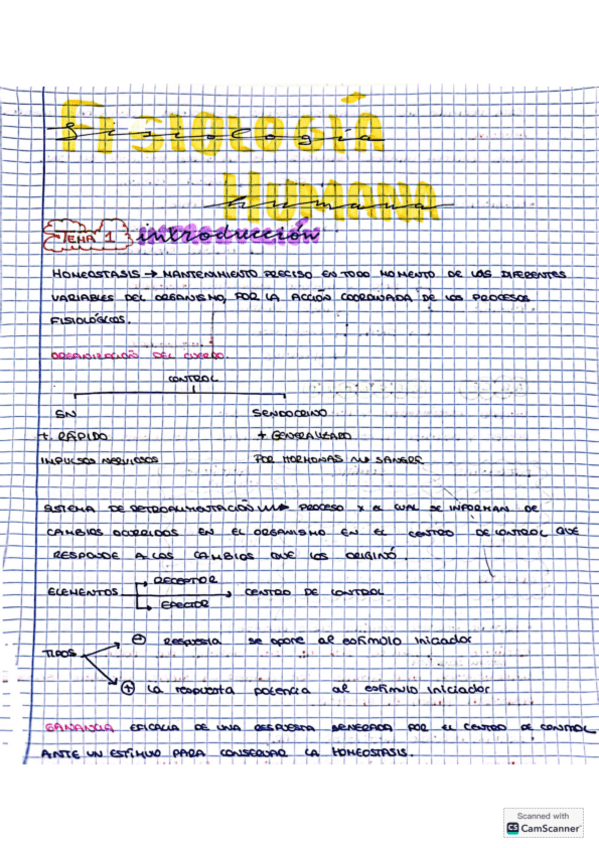 FISIOLOGÍA
fisiología
HUMANA
humana
TEMA 1 introducción
HOMEOSTASIS → MANTENIMIENTO PRECISO EN TODO MOMENTO DE LAS DIFERENTES
VARIABLES DEL ORGANISMO, POR LA ACCIÓN COORDINADA DE LOS PROCESOS
FISIOLÓGICOS.
ORGANIZACIÓN DEL CUERPO.
CONTROL
SN SENDOCRINO
+ RÁPIDO + GENERALIZADO
IMPULSOS NERVIOSOS POR HORMONAS → SANGRE
SISTEMA DE RETROALIMENTACIÓN → PROCESO X EL CUAL SE INFORMAN DE
CAMBIOS OCURRIDOS EN EL ORGANISMO EN EL CENTRO DE CONTROL QUE
RESPONDE A LOS CAMBIOS QUE LOS ORIGINÓ.
RECEPTOR
ELEMENTOS → CENTRO DE CONTROL
EFECTOR
⊖ RESPUESTA se opone al estímulo iniciador
TIPOS
⊕ La respuesta potencia al estímulo iniciador
GANANCIA EFICACIA DE UNA RESPUESTA GENERADA POR EL CENTRO DE CONTROL
ANTE UN ESTÍMULO PARA CONSERVAR LA HOMEOSTASIS.
Scanned with
CS CamScanner